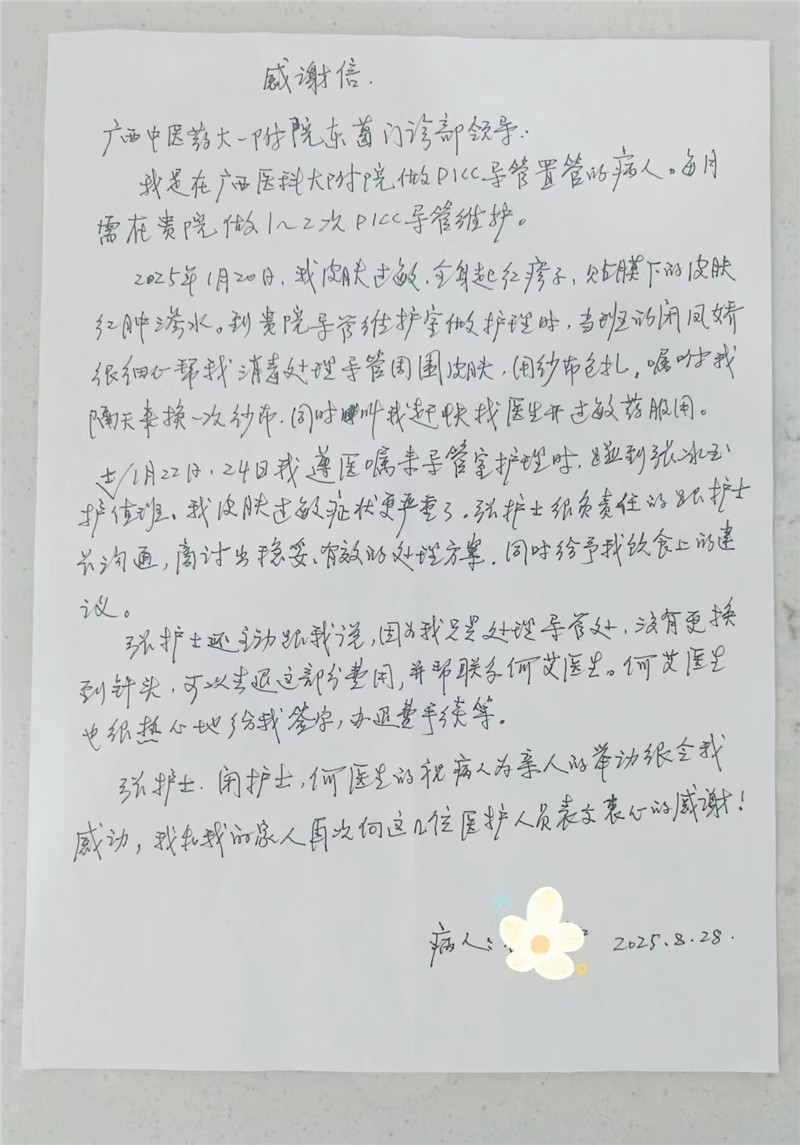 感谢信.
广西中医药大一附院东葛门诊部领导:
我是在广西医科大附院做PICC导管置管的病人。每月
需在贵院做1~2次PICC导管维护。
2025年1月20日,我皮肤过敏,全身起红疹子,贴膜下的皮肤
红肿渗水。到贵院导管维护室做护理时,当班的闭凤娇
很细心帮我消毒处理导管周围皮肤,用纱布包扎,嘱咐我
隔天来换一次纱布.同时叫我赶快找医生开过敏药服用。
1月22日,24日我遵医嘱来导管室护理时,碰到张冰玉
护士值班。我皮肤过敏症状更严重了.张护士很负责任的跟护士
长沟通,商讨出稳妥、有效的处理方案.同时给予我饮食上的建
议。
张护士还主动跟我说,因为我只是处理导管处,没有更换
到针头,可以去退这部分费用,并帮联系何艾医生。何艾医生
也很热心地给我签字,办退费手续等。
张护士.闭护士,何医生的视病人为亲人的举动很令我
感动,我和我的家人再次向这几位医护人员表示衷心的感谢!
病人: 2025.8.28.